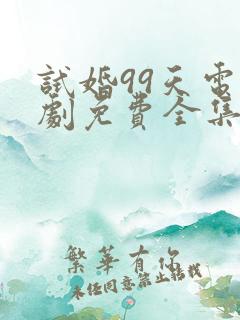 試婚99天電
劇免費全集
繁華有你
未经同意禁止转载